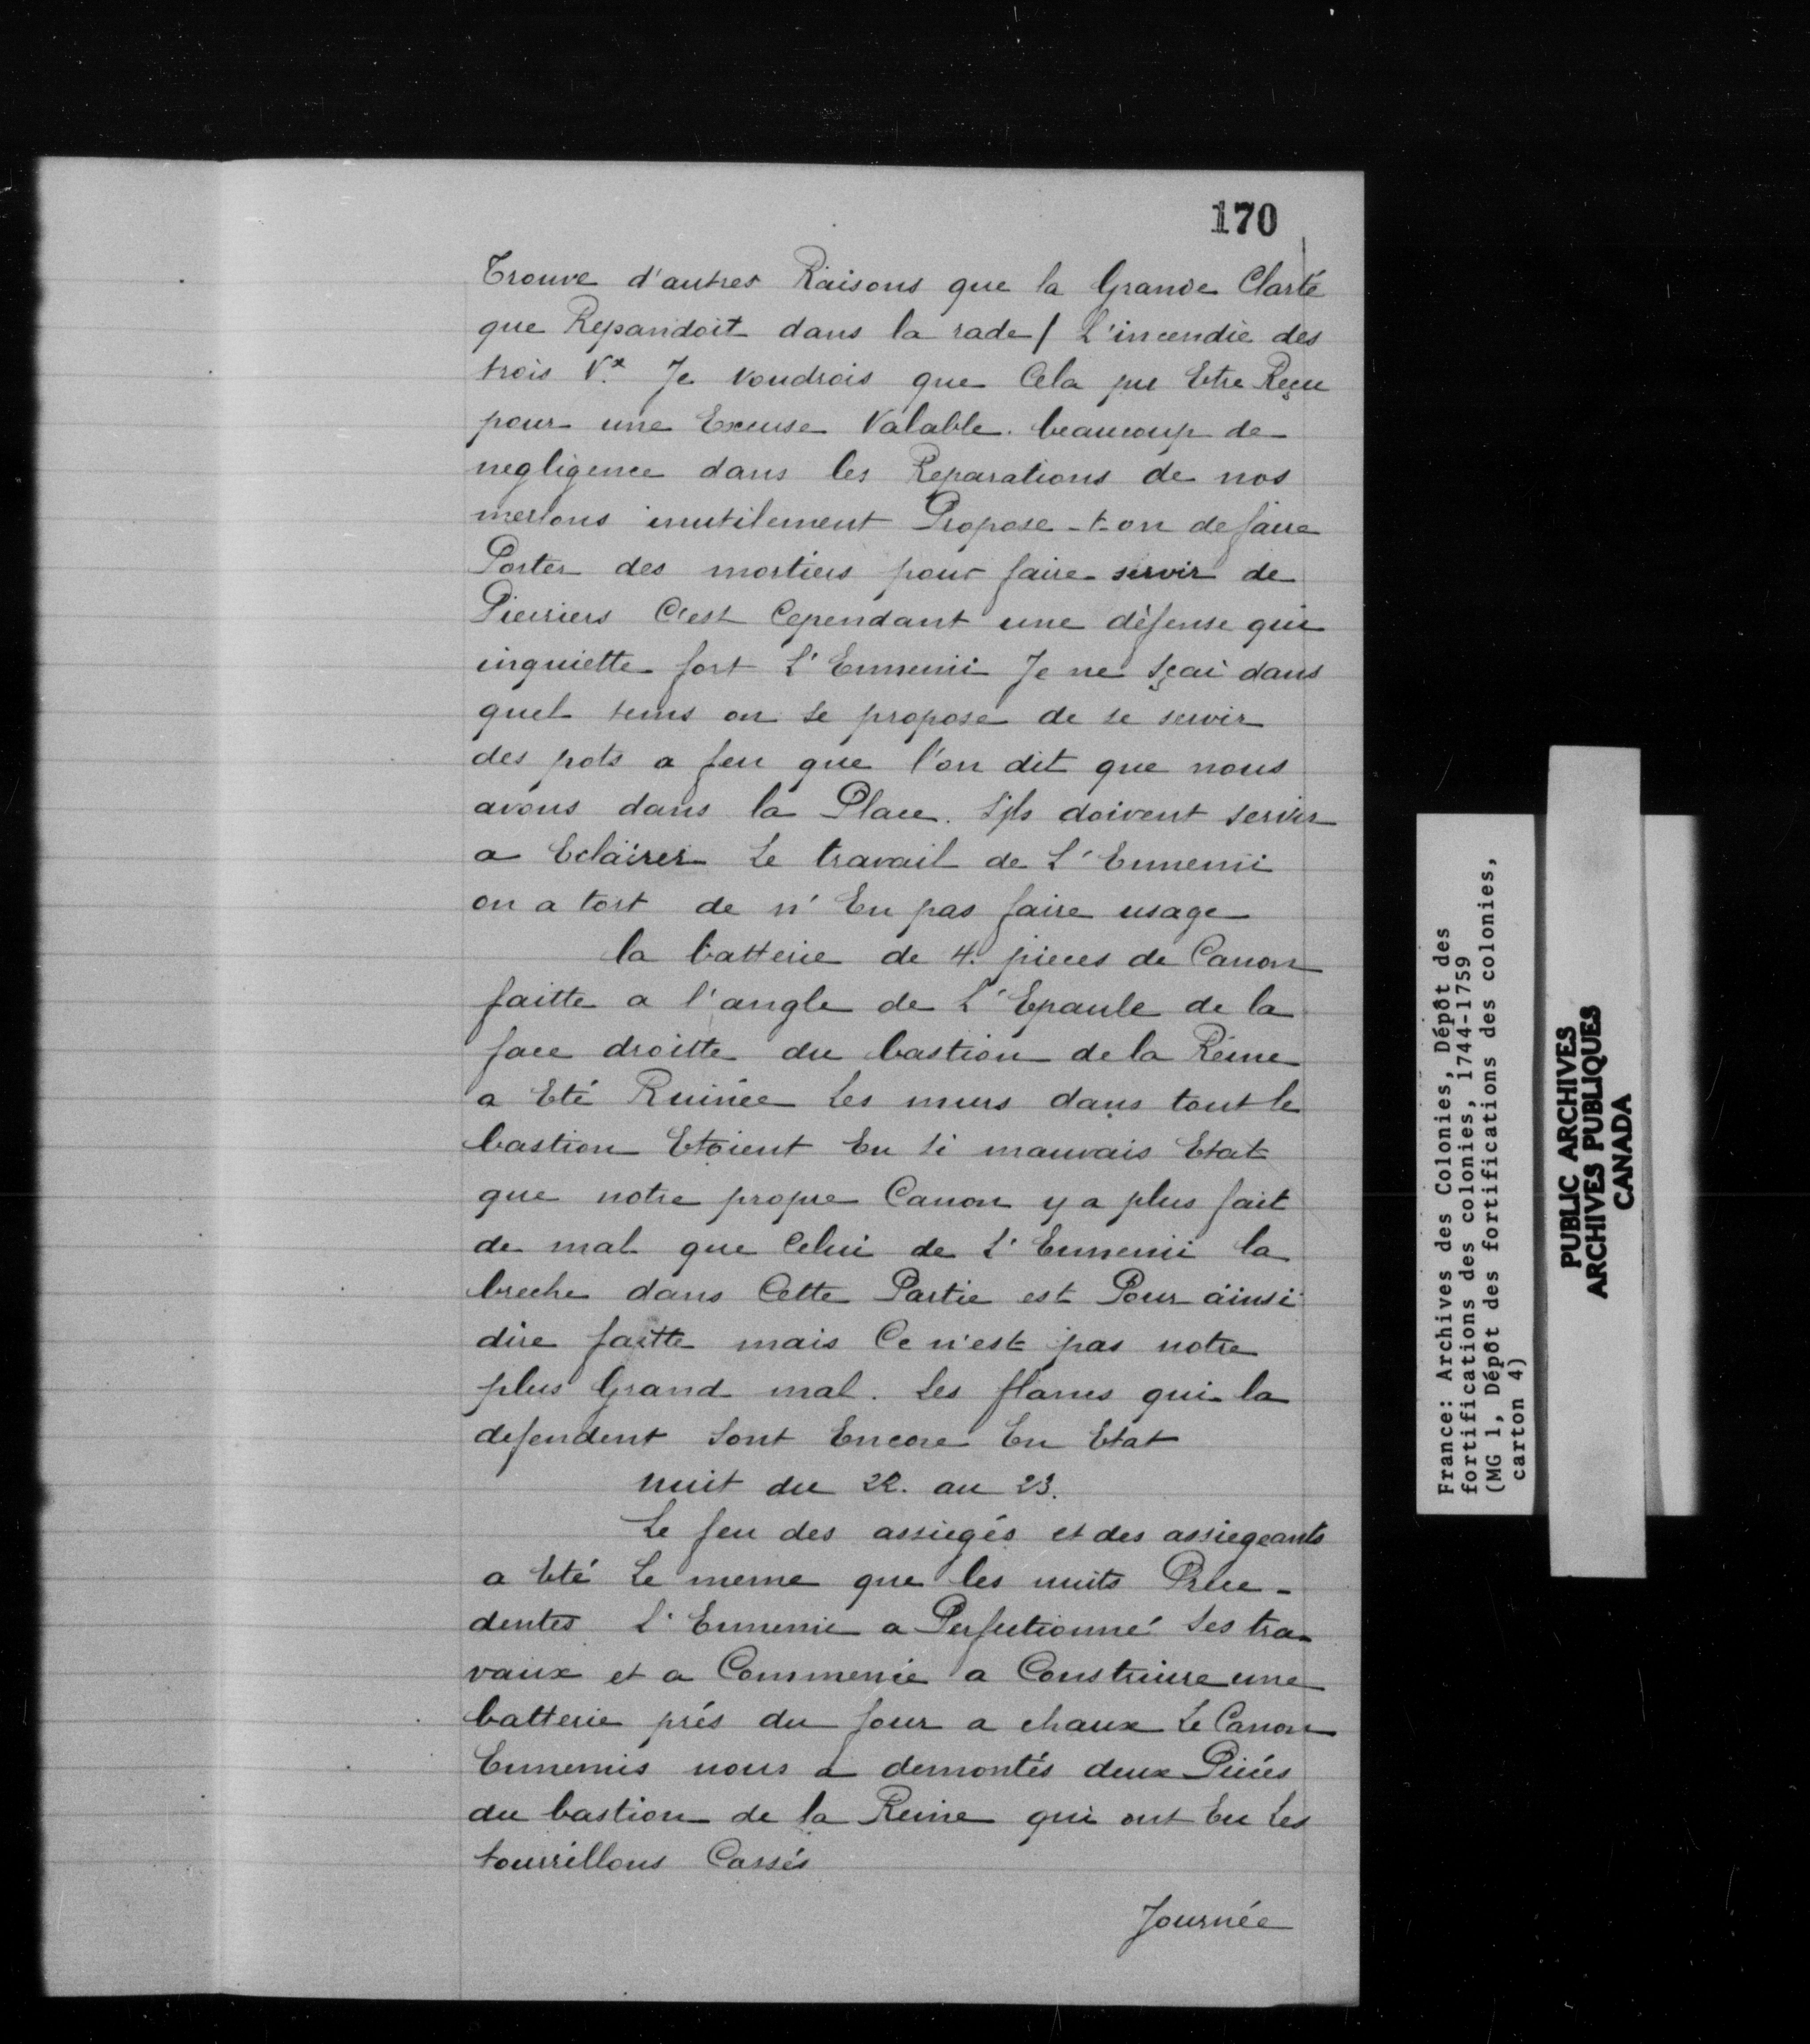 170
Trouve d'autres Raisons que la Grande Clarté
que Repandoit dans la rade / L'incendie des
trois Vx. Je voudrois que Cela pu Etre Reçu
pour une Excuse Valable. beaucoup de
negligence dans les Reparations de nos
merlons inutilement Propose-t-on de faire
Porter des mortiers pour faire servir de
Pierriers C'est Cependant une défense qui
inquiette fort L'Ennemi Je ne Sçai dans
quel tems on se propose de se servir
des pots a feu que l'on dit que nous
avons dans la Place. S'ils doivent servir
a Eclairer Le travail de L'Ennemi
on a tort de n'En pas faire usage
la batterie de 4. pieces de Canon
faitte a l'angle de L'Epaule de la
face droitte du bastion de la Reine
a Eté Ruinée Les murs dans tout le
bastion Etoient En Si mauvais Etat
que notre propre Canon y a plus fait
de mal que Celui de L'Ennemi la
breche dans Cette Partie est Pour ainsi
dire faitte mais Ce n'est pas notre
plus Grand mal. Les flancs qui la
defendent Sont Encore En Etat
nuit du 22. au 23.
Le feu des assiegés et des assiegeants
a Eté Le meme que les nuits Prece-
dentes L'Ennemi a Perfectionné Ses tra-
vaux et a Commencé a Construire une
batterie prés du four a chaux Le Canon
Ennemis nous a demontés deux Piéces
du bastion de la Reine qui ont Eu Les
tourrillons Cassés
Journée
France: Archives des Colonies, Dépôt des
fortifications des colonies, 1744-1759
(MG 1, Dépôt des fortifications des colonies,
carton 4)
PUBLIC ARCHIVES
ARCHIVES PUBLIQUES
CANADA